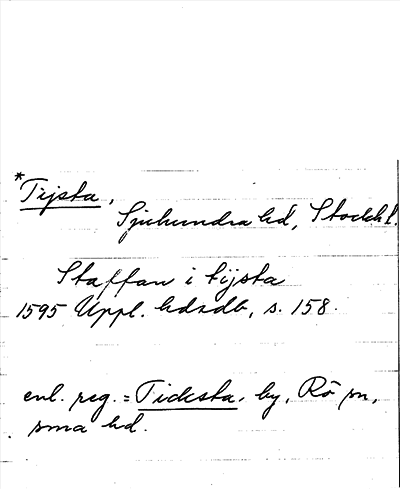 *Tijsta,
Sjuhundra hd, Stockh l.
Staffan i tijsta
1595 Uppl. hdrdb, s. 158.
enl. reg. = Ticksta, by, Rö sn,
sma hd.